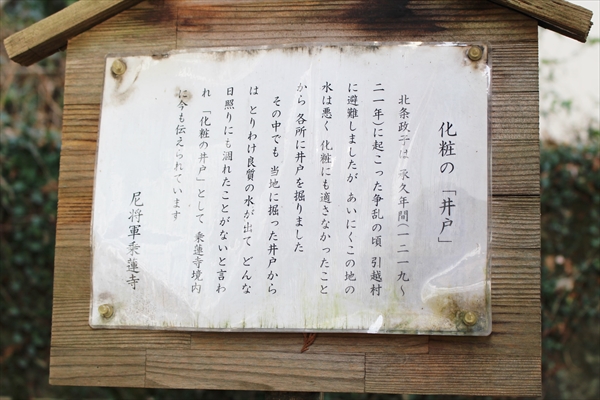 化粧の「井戸」
北条政子は 承久年間(一二一九～
二一年)に起こった争乱の頃 引越村
に避難しましたが あいにくこの地の
水は悪く 化粧にも適さなかったこと
から 各所に井戸を掘りました
その中でも 当地に掘った井戸から
は とりわけ良質の水が出て どんな
日照りにも涸れたことがないと言わ
れ 「化粧の井戸」として 乗蓮寺境内
に今も伝えられています
尼将軍乗蓮寺